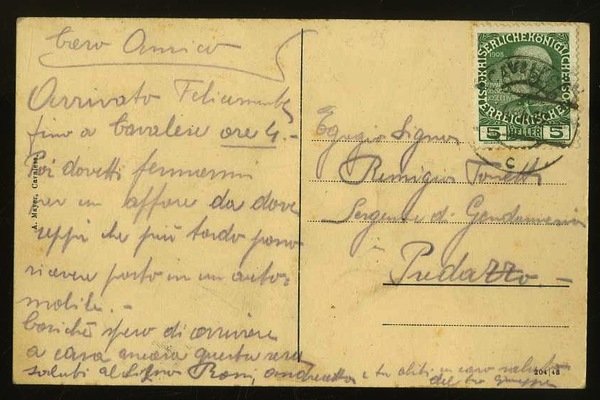 Caro Amico
Arrivato Felicemente
fino a Cavalese ore 4.-
Poi dovetti fermarmi
per un affare da dove
seppi che più tardo posso
ricevere posto in un auto-
mobile.-
Cosichè spero di arrivare
a casa ancora questa sera
saluti al Signor
e tu abiti in caro saluto
del tuo Giuseppe
A. Mayer, Cavalese
KAISERLICHE KÖNIGLICHE
ÖSTERREICHISCHE
1908
5 HELLER 5
CAVALESE
c
Egregio Signor
Remigio
Sergente di Gendarmeria
in
Predazzo.-